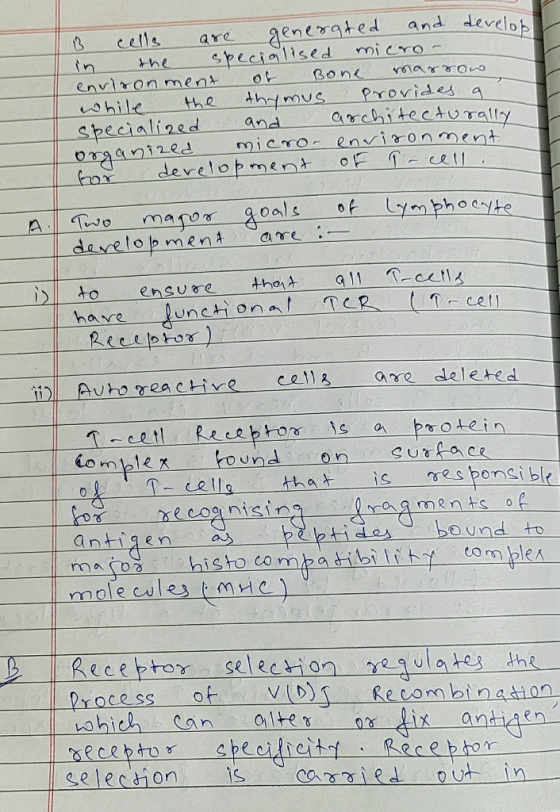 B cells are generated and develop
in the specialised micro-
environment of Bone marrow,
while the thymus provides a
specialized and architecturally
organized micro-environment
for development of T-cell.
A. Two major goals of Lymphocyte
development are :-
i) to ensure that all T-cells
have functional TCR (T-cell
Receptor)
ii) Autoreactive cells are deleted
T-cell Receptor is a protein
complex found on surface
of T-cells that is responsible
for recognising fragments of
antigen as peptides bound to
major histocompatibility complex
molecules (MHC)
B Receptor selection regulates the
Process of V(D)J Recombination,
which can alter or fix antigen
receptor specificity. Receptor
selection is carried out in